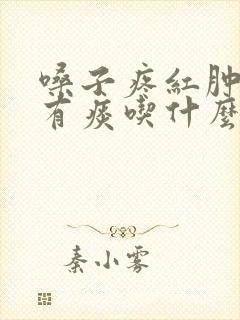 嗓子疼紅肿
有痰喫什麼
秦小雾